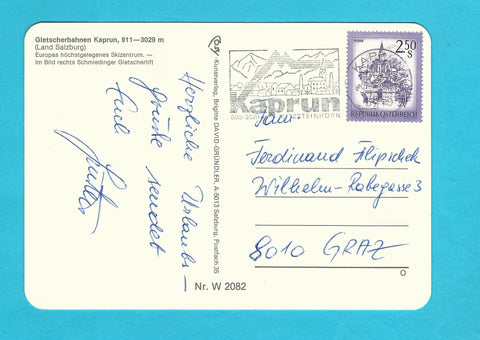 Gletscherbahnen Kaprun, 911—3029 m
(Land Salzburg)
Europas höchstgelegenes Skizentrum. —
Im Bild rechts Schmiedinger Gletscherlift
Herzliche Urlaubs-
grüße sendet
Euch
Kunstverlag, Brigitte DAVID-GRÜNDLER, A-5013 Salzburg, Postfach 35
Nr. W 2082
Kaprun
KAPRUN
2.50
S
REPUBLIK ÖSTERREICH
Fam.
Ferdinand Filipschek
Wilhelm-Raabegasse 3
8010 GRAZ